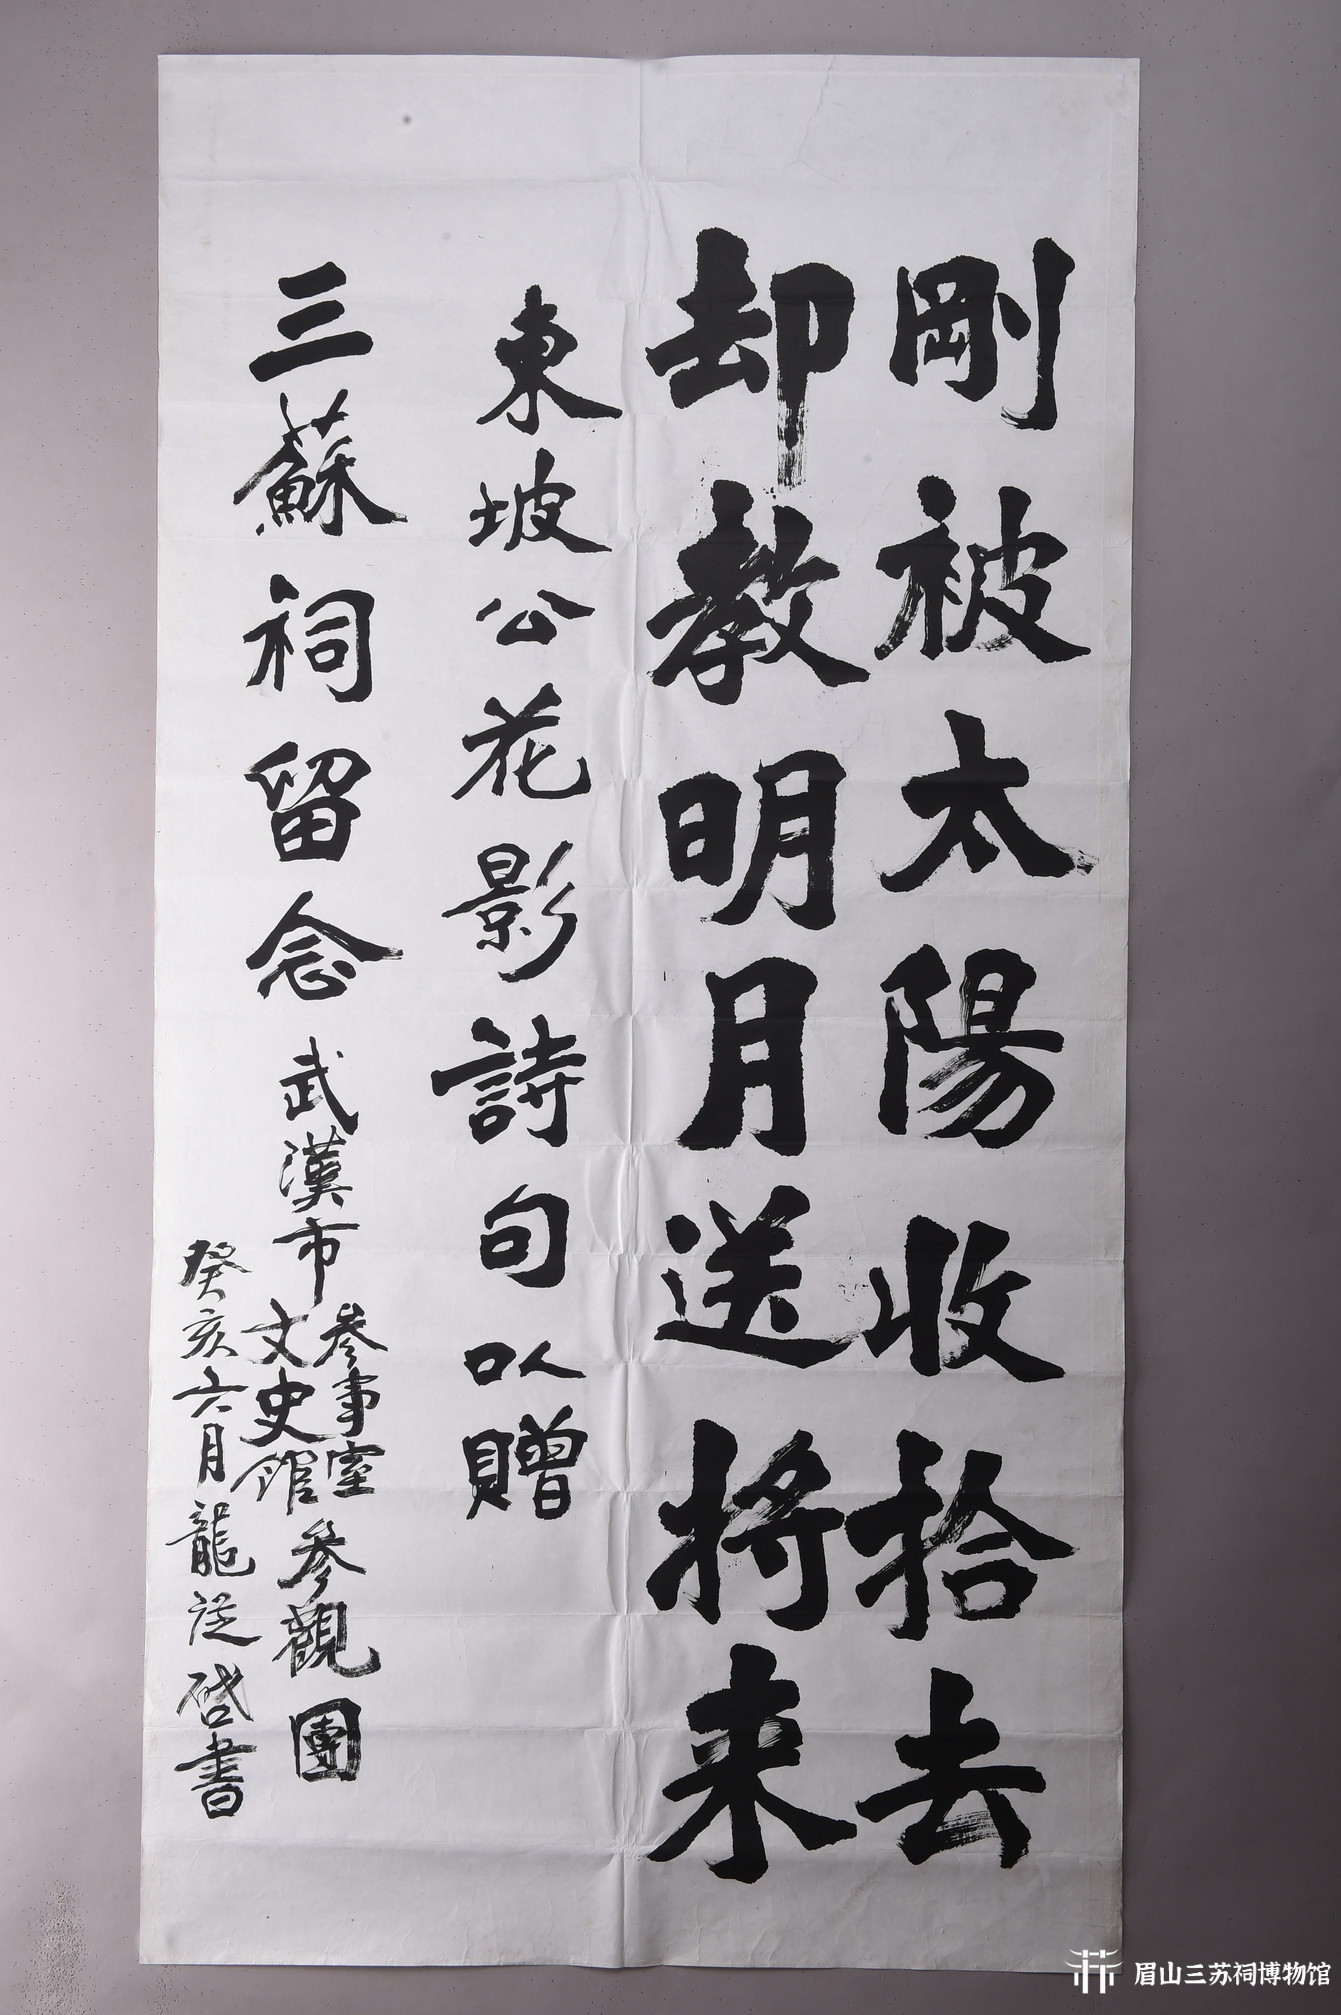 剛被太陽收拾去
却教明月送將来
東坡公花影詩句以贈
三蘇祠留念
武漢市
參事室
文史館
参觀團
癸亥六月龍從啓書
眉山三苏祠博物馆